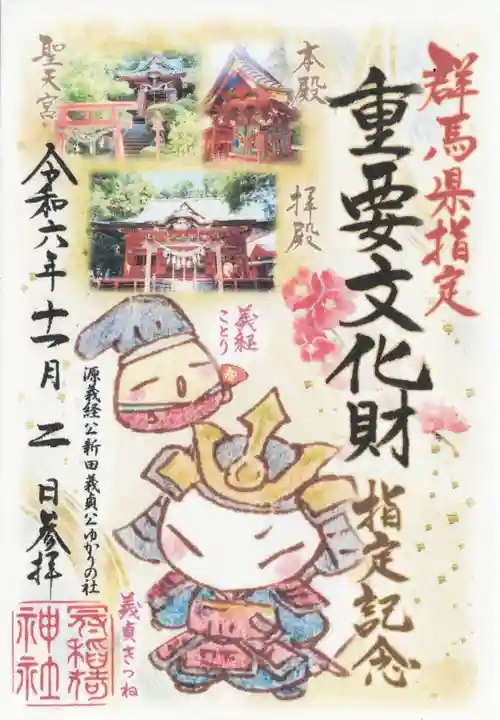 群馬県指定
重要文化財
指定記念
本殿
聖天宮
拝殿
義経
ことり
源義経公新田義貞公ゆかりの社
義貞きつね
令和六年十一月二日参拝
冠稲荷
神社